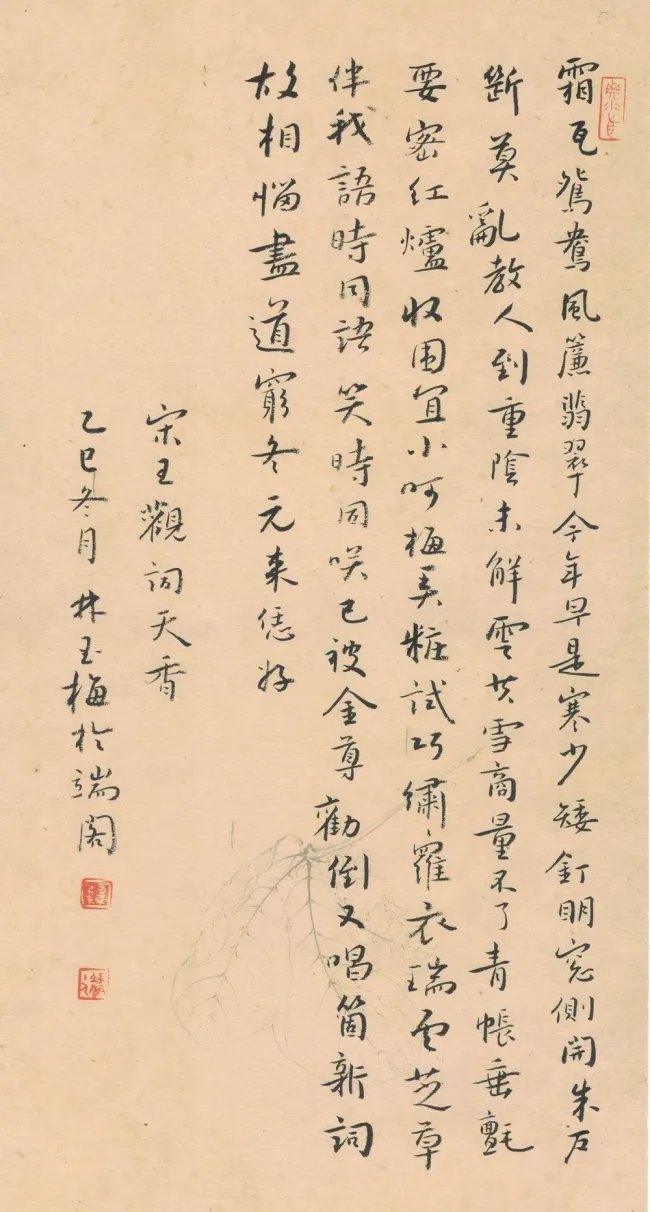 霜瓦鴛鴦風簾翡翠今年早是寒少矮釘明窓側開朱户
斷莫亂教人到重陰未解雲共雪商量不了青帳垂氈
要密紅爐收围宜小呵梅弄粧試巧繡羅衣瑞雲芝草
伴我語時同語笑時同咲已被金尊勸倒又唱箇新詞
故相惱盡道窮冬元来恁好
宋王觀詞天香
乙巳冬月林玉梅於端阁